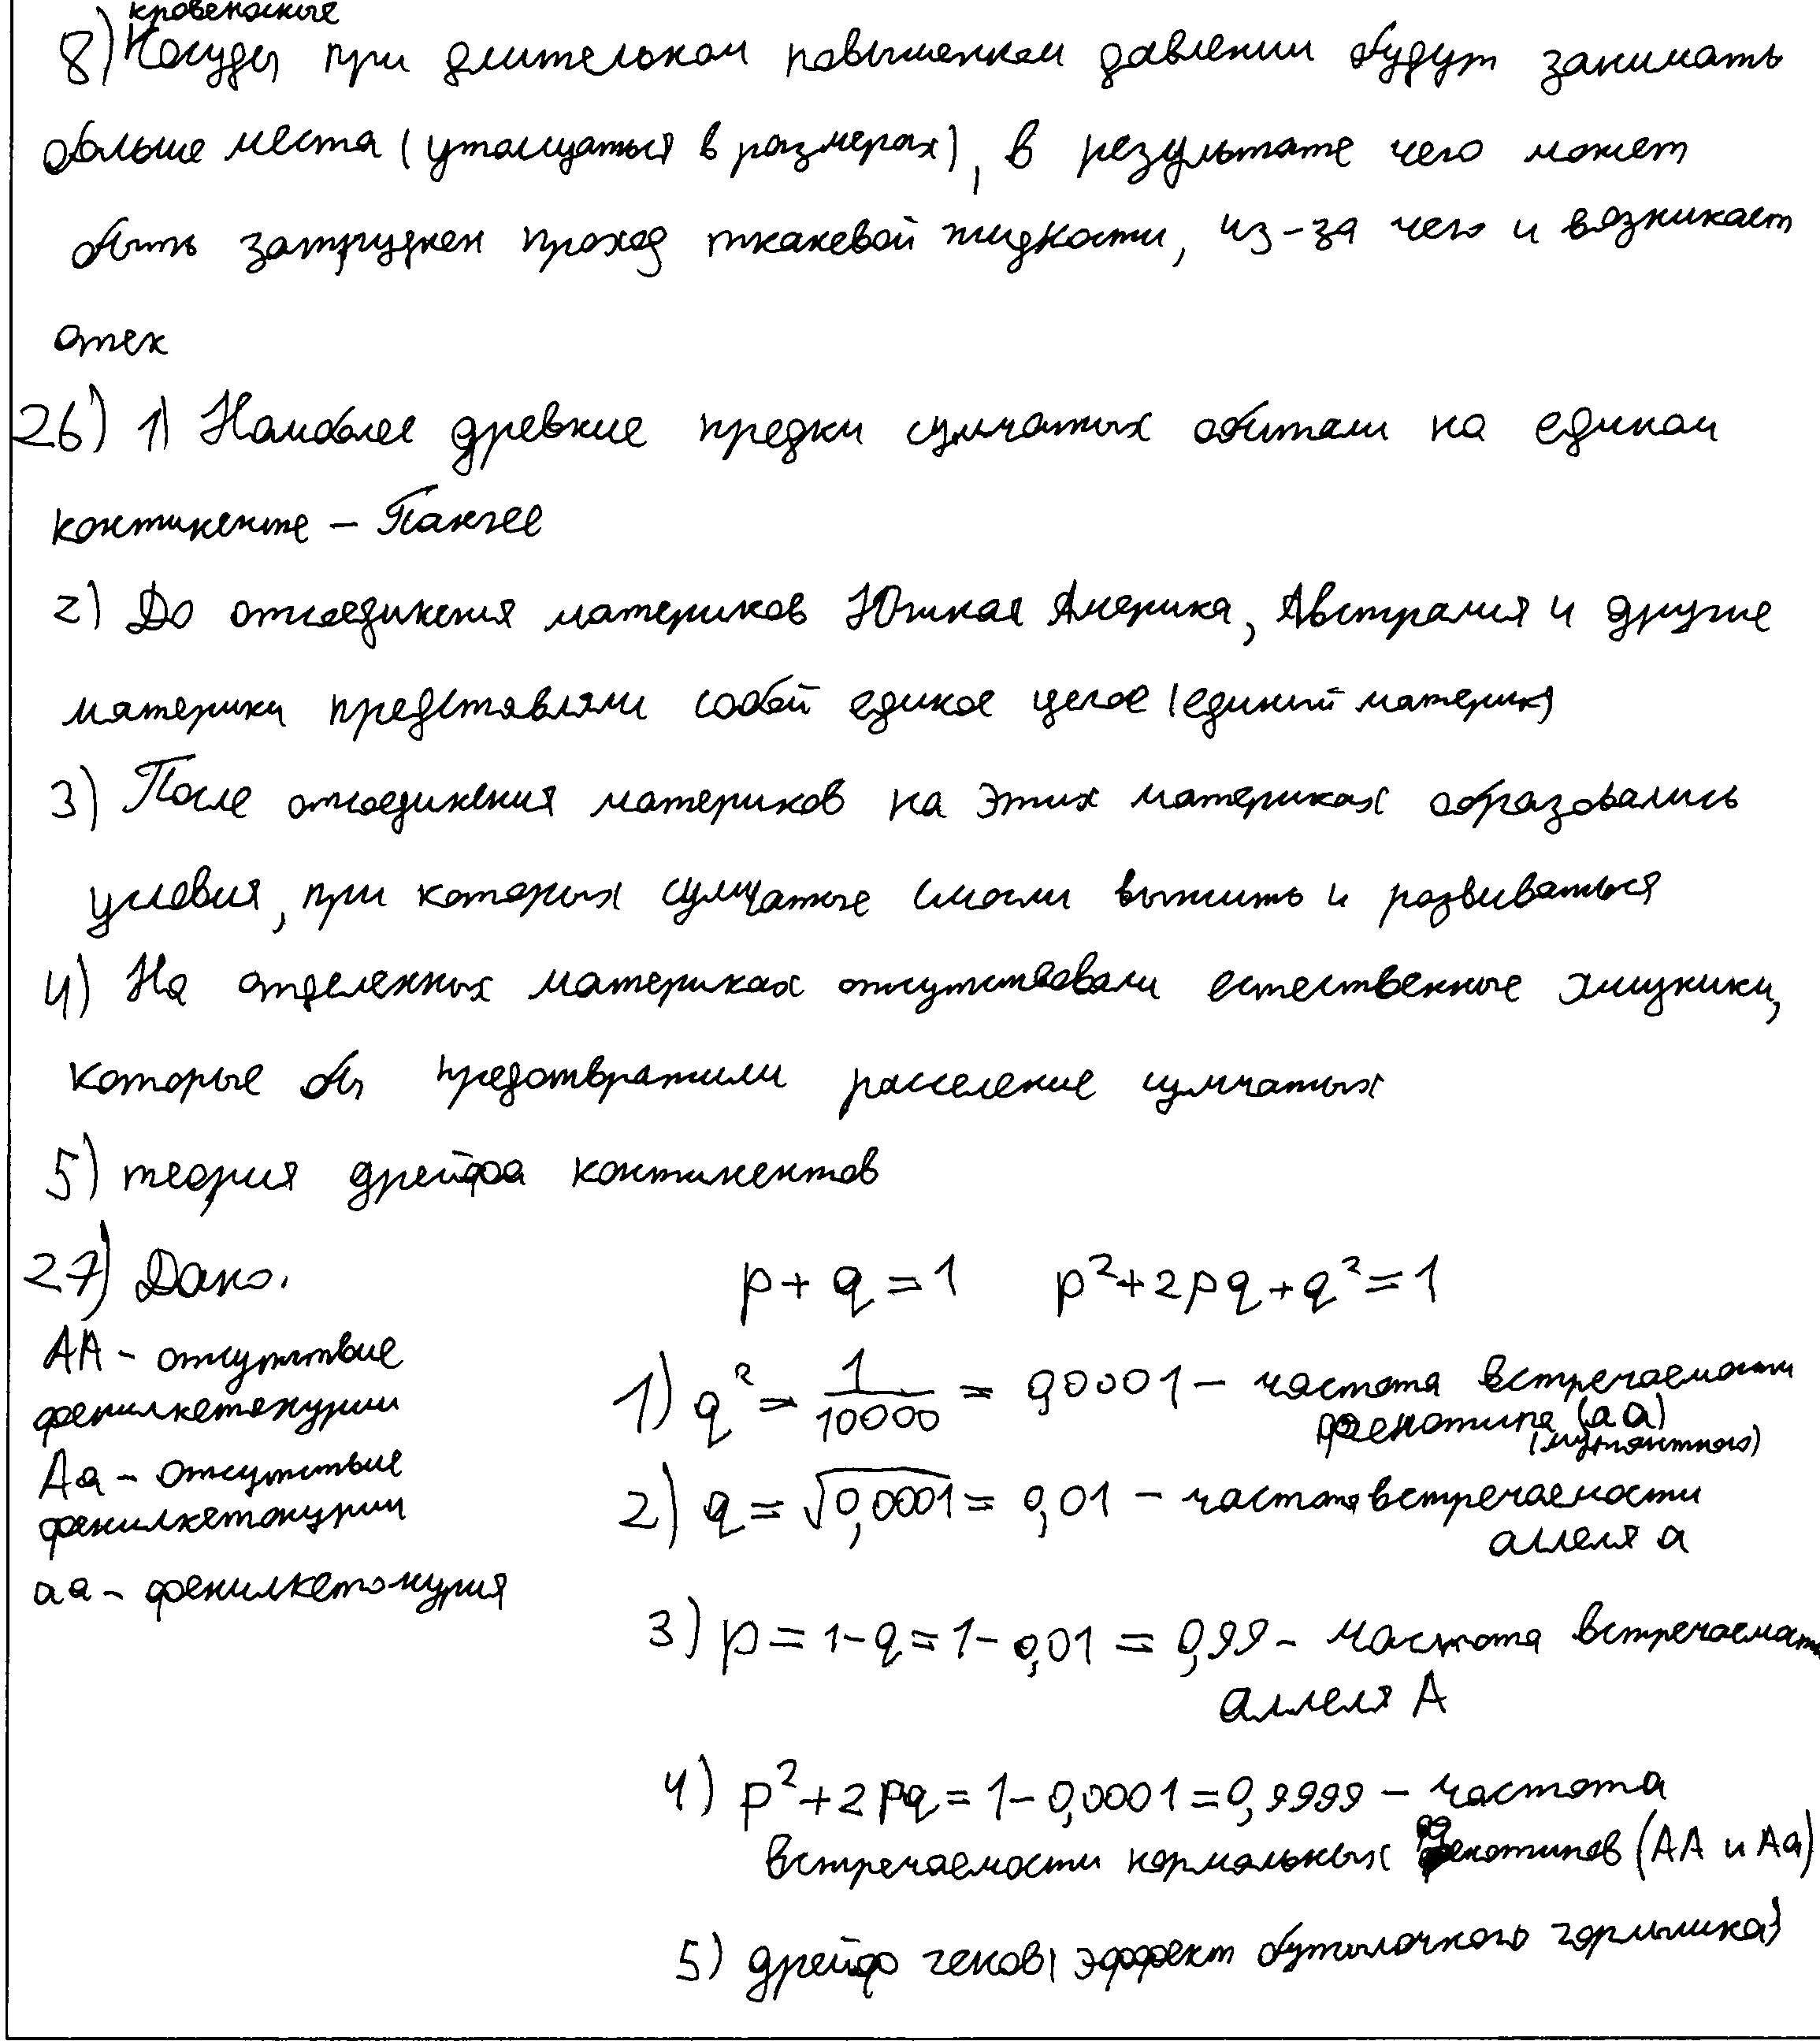 кровеносные
8) Сосуды при длительном повышенном давлении будут занимать
больше места (утолщаться в размерах), в результате чего может
быть затруднен проход тканевой жидкости, из-за чего и возникает
отек
26) 1) Наиболее древние предки сумчатых обитали на едином
континенте – Пангее
2) До отсоединения материков Южная Америка, Австралия и другие
материки представляли собой единое целое (единый материк)
3) После отсоединения материков на этих материках образовались
условия, при которых сумчатые смогли выжить и развиваться
4) На отделенных материках отсутствовали естественные хищники,
которые бы предотвратили расселение сумчатых
5) теория дрейфа континентов
27) Дано.
p + q = 1 p² + 2pq + q² = 1
AA – отсутствие
фенилкетонурии
Aa – отсутствие
фенилкетонурии
aa – фенилкетонурия
1) q² = 1/10000 = 0,0001 – частота встречаемости
фенотипа (aa)
(мутантного)
2) q = √0,0001 = 0,01 – частота встречаемости
аллеля a
3) p = 1 – q = 1 – 0,01 = 0,99 – частота встречаемости
аллеля A
4) p² + 2pq = 1 – 0,0001 = 0,9999 – частота
встречаемости нормальных фенотипов (AA и Aa)
5) дрейф генов (эффект бутылочного горлышка)